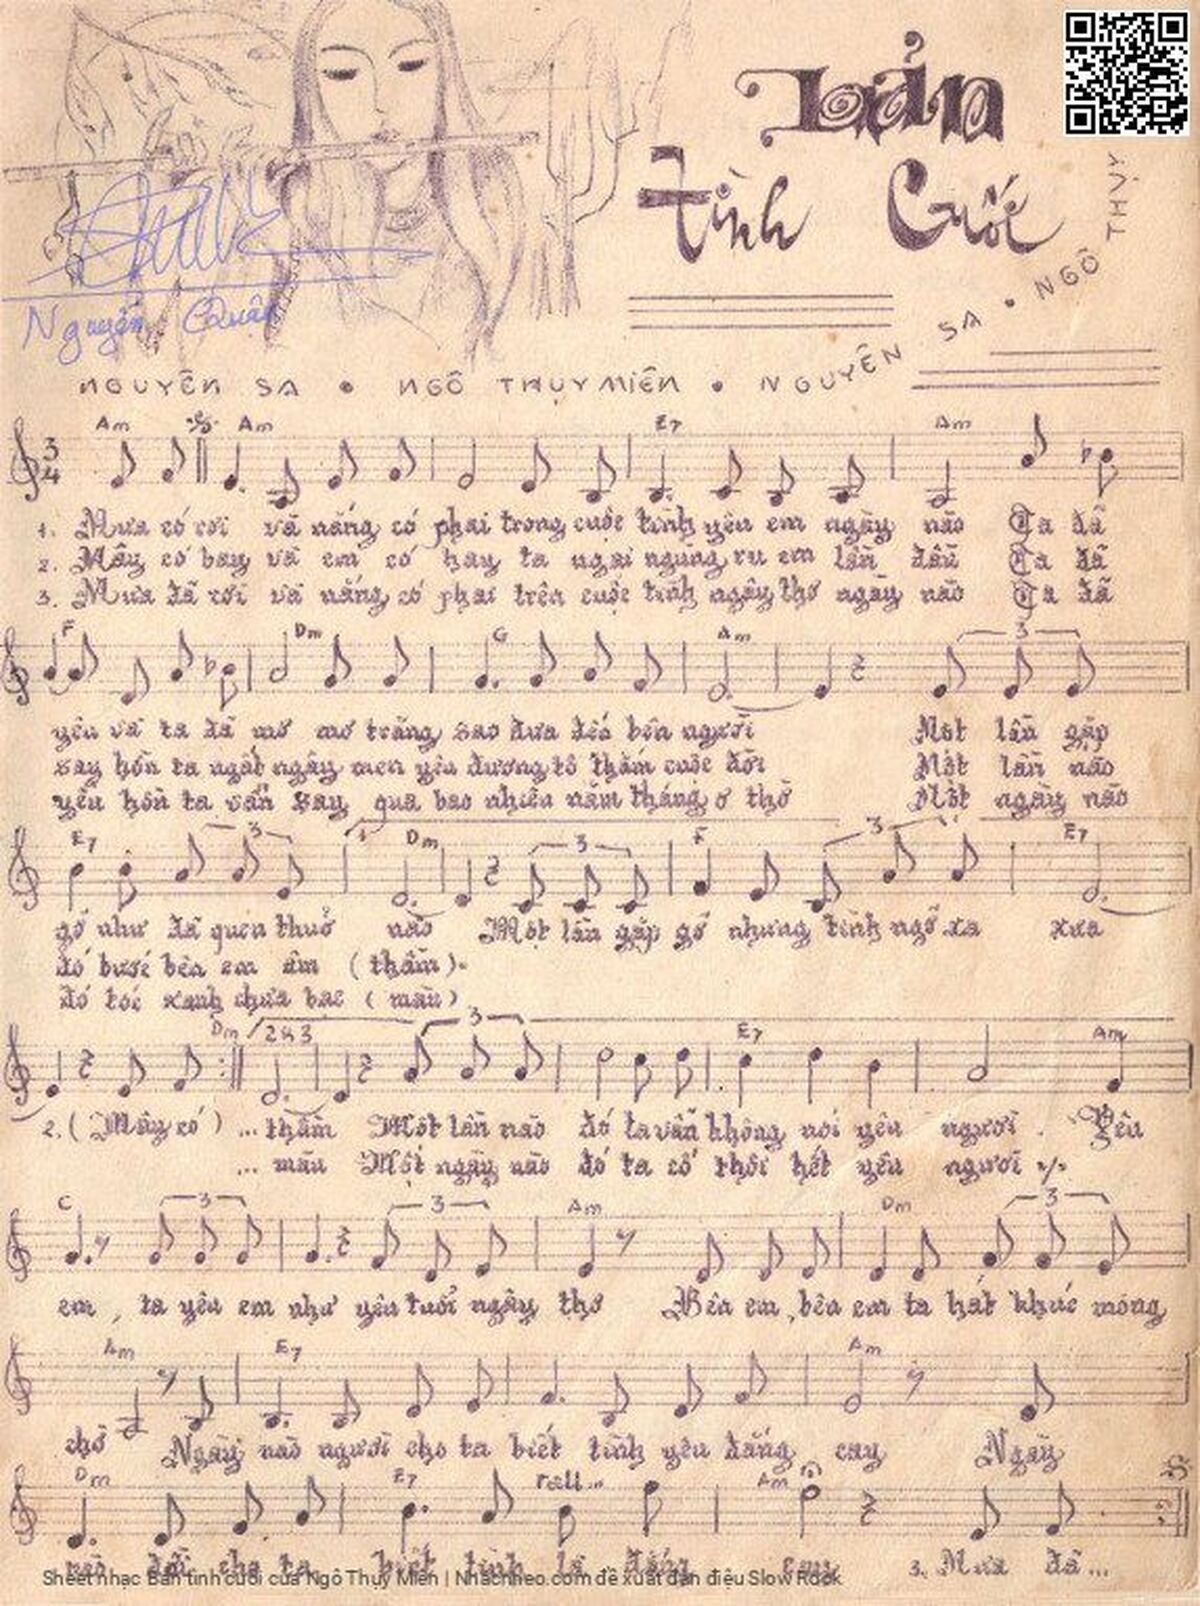 Bản
Tình Cuối
Nguyễn Quân
NGUYÊN SA • NGÔ THỤY MIÊN • NGUYÊN SA • NGÔ THỤY
Am Am E7 Am
3
4
1. Mưa có rơi và nắng có phai trong cuộc tình yêu em ngày nào Ta đã
2. Mây có bay và em có hay ta ngại ngùng ru em lần đầu Ta đã
3. Mưa đã rơi và nắng có phai trên cuộc tình ngây thơ ngày nào Ta đã
F Dm G Am 3
yêu và ta đã mơ mơ trăng sao đưa đến bên người Một lần gặp
say hồn ta ngất ngây men yêu đương tô thắm cuộc đời Một lần nào
yêu hồn ta vẫn say qua bao nhiêu năm tháng ơ thờ Một ngày nào
E7 3 1 Dm 3 F 3 E7
gỡ như đã quen thuở nào Một lần gặp gỡ nhưng tình ngỡ xa xưa
đó bước bên em âm (thầm).
đó tóc xanh chưa bạc (màu)
Dm 2&3 3 E7 Am
2. (Mây có) ... thầm Một lần nào đó ta vẫn không nói yêu người . Yêu
... màu Một ngày nào đó ta cố thôi hết yêu người
C 3 3 Am Dm 3
em, ta yêu em như yêu tuổi ngây thơ Bên em, bên em ta hát khúc mong
Am E7 Am
chờ Ngày nào người cho ta biết tình yêu đắng cay Ngày
Dm E7 rall... Am
nào đời cho ta biết tình là đắng cay 3. Mưa đã...
Sheet nhạc Bản tình cuối của Ngô Thụy Miên | Nhachheo.com đề xuất đàn điệu Slow Rock